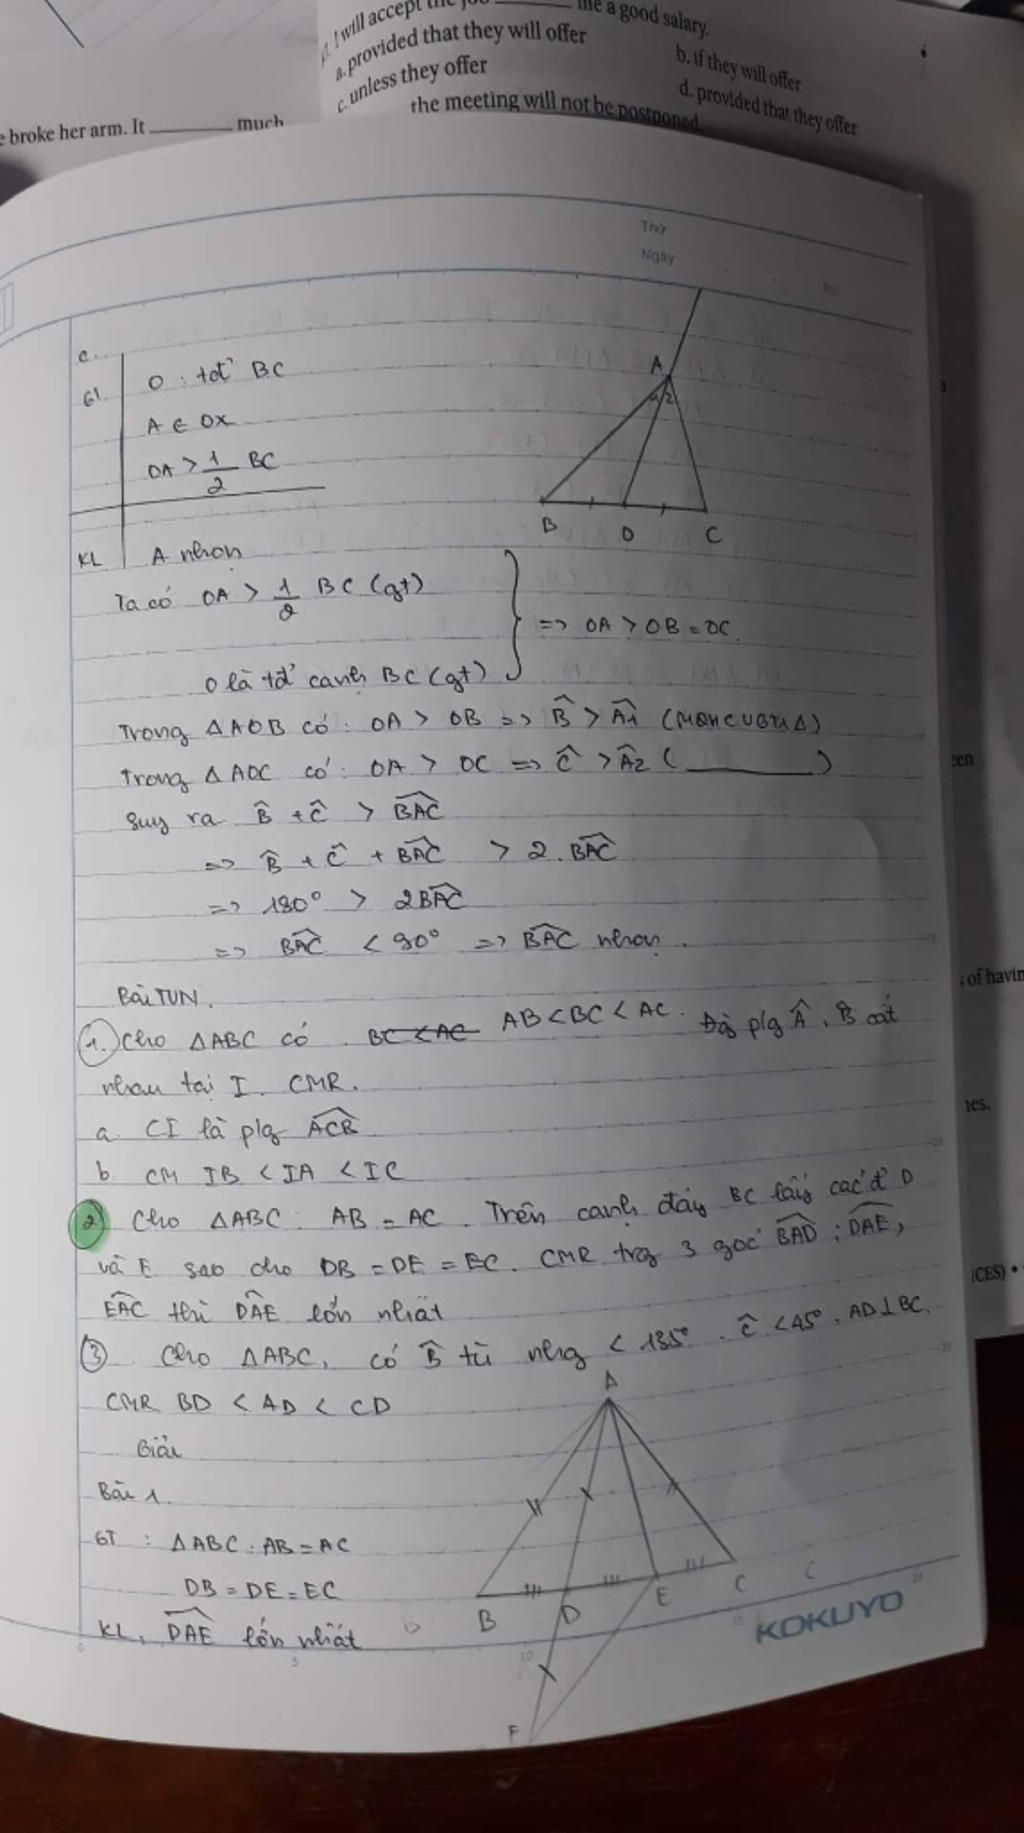 I will accept the job ______ me a good salary.
a. provided that they will offer
b. if they will offer
c. unless they offer
d. provided that they offer
e broke her arm. It ______ much
the meeting will not be postponed
Thứ
Ngày
No
c.
GT
O : tđ' BC
A ∈ Ox
OA > 1/2 BC
KL
A nhọn
A
1 2
B
O
C
Ta có OA > 1/2 BC (gt)
O là tđ' cạnh BC (gt)
=> OA > OB = OC.
Trong ΔAOB có: OA > OB => B̂ > Â1 (MQHCVGTΔ)
Trong ΔAOC có: OA > OC => Ĉ > Â2 (______)
Suy ra B̂ + Ĉ > BAC
=> B̂ + Ĉ + BAC > 2. BAC
=> 180° > 2BAC
=> BAC < 90° => BAC nhọn.
Bài TVN.
1. Cho ΔABC có BC < AC AB < BC < AC. Đg plg Â, B̂ cắt
nhau tại I. CMR.
a. CI là plg ACB
b. CM IB < IA < IC
2 Cho ΔABC: AB = AC. Trên cạnh đáy BC lấy các đ' D
và E sao cho DB = DE = EC. CMR trg 3 góc BAD; DAE,
EAC thì DAE lớn nhất
3. Cho ΔABC, có B̂ tù nhg < 135°. Ĉ < 45°. AD⊥BC.
CMR BD < AD < CD
Giải
Bài 1.
GT : ΔABC: AB = AC
DB = DE = EC
KL. DAE lớn nhất
A
B
D
E
C
C
F
KOKUYO
zen
s of havin
nes.
(CES) •